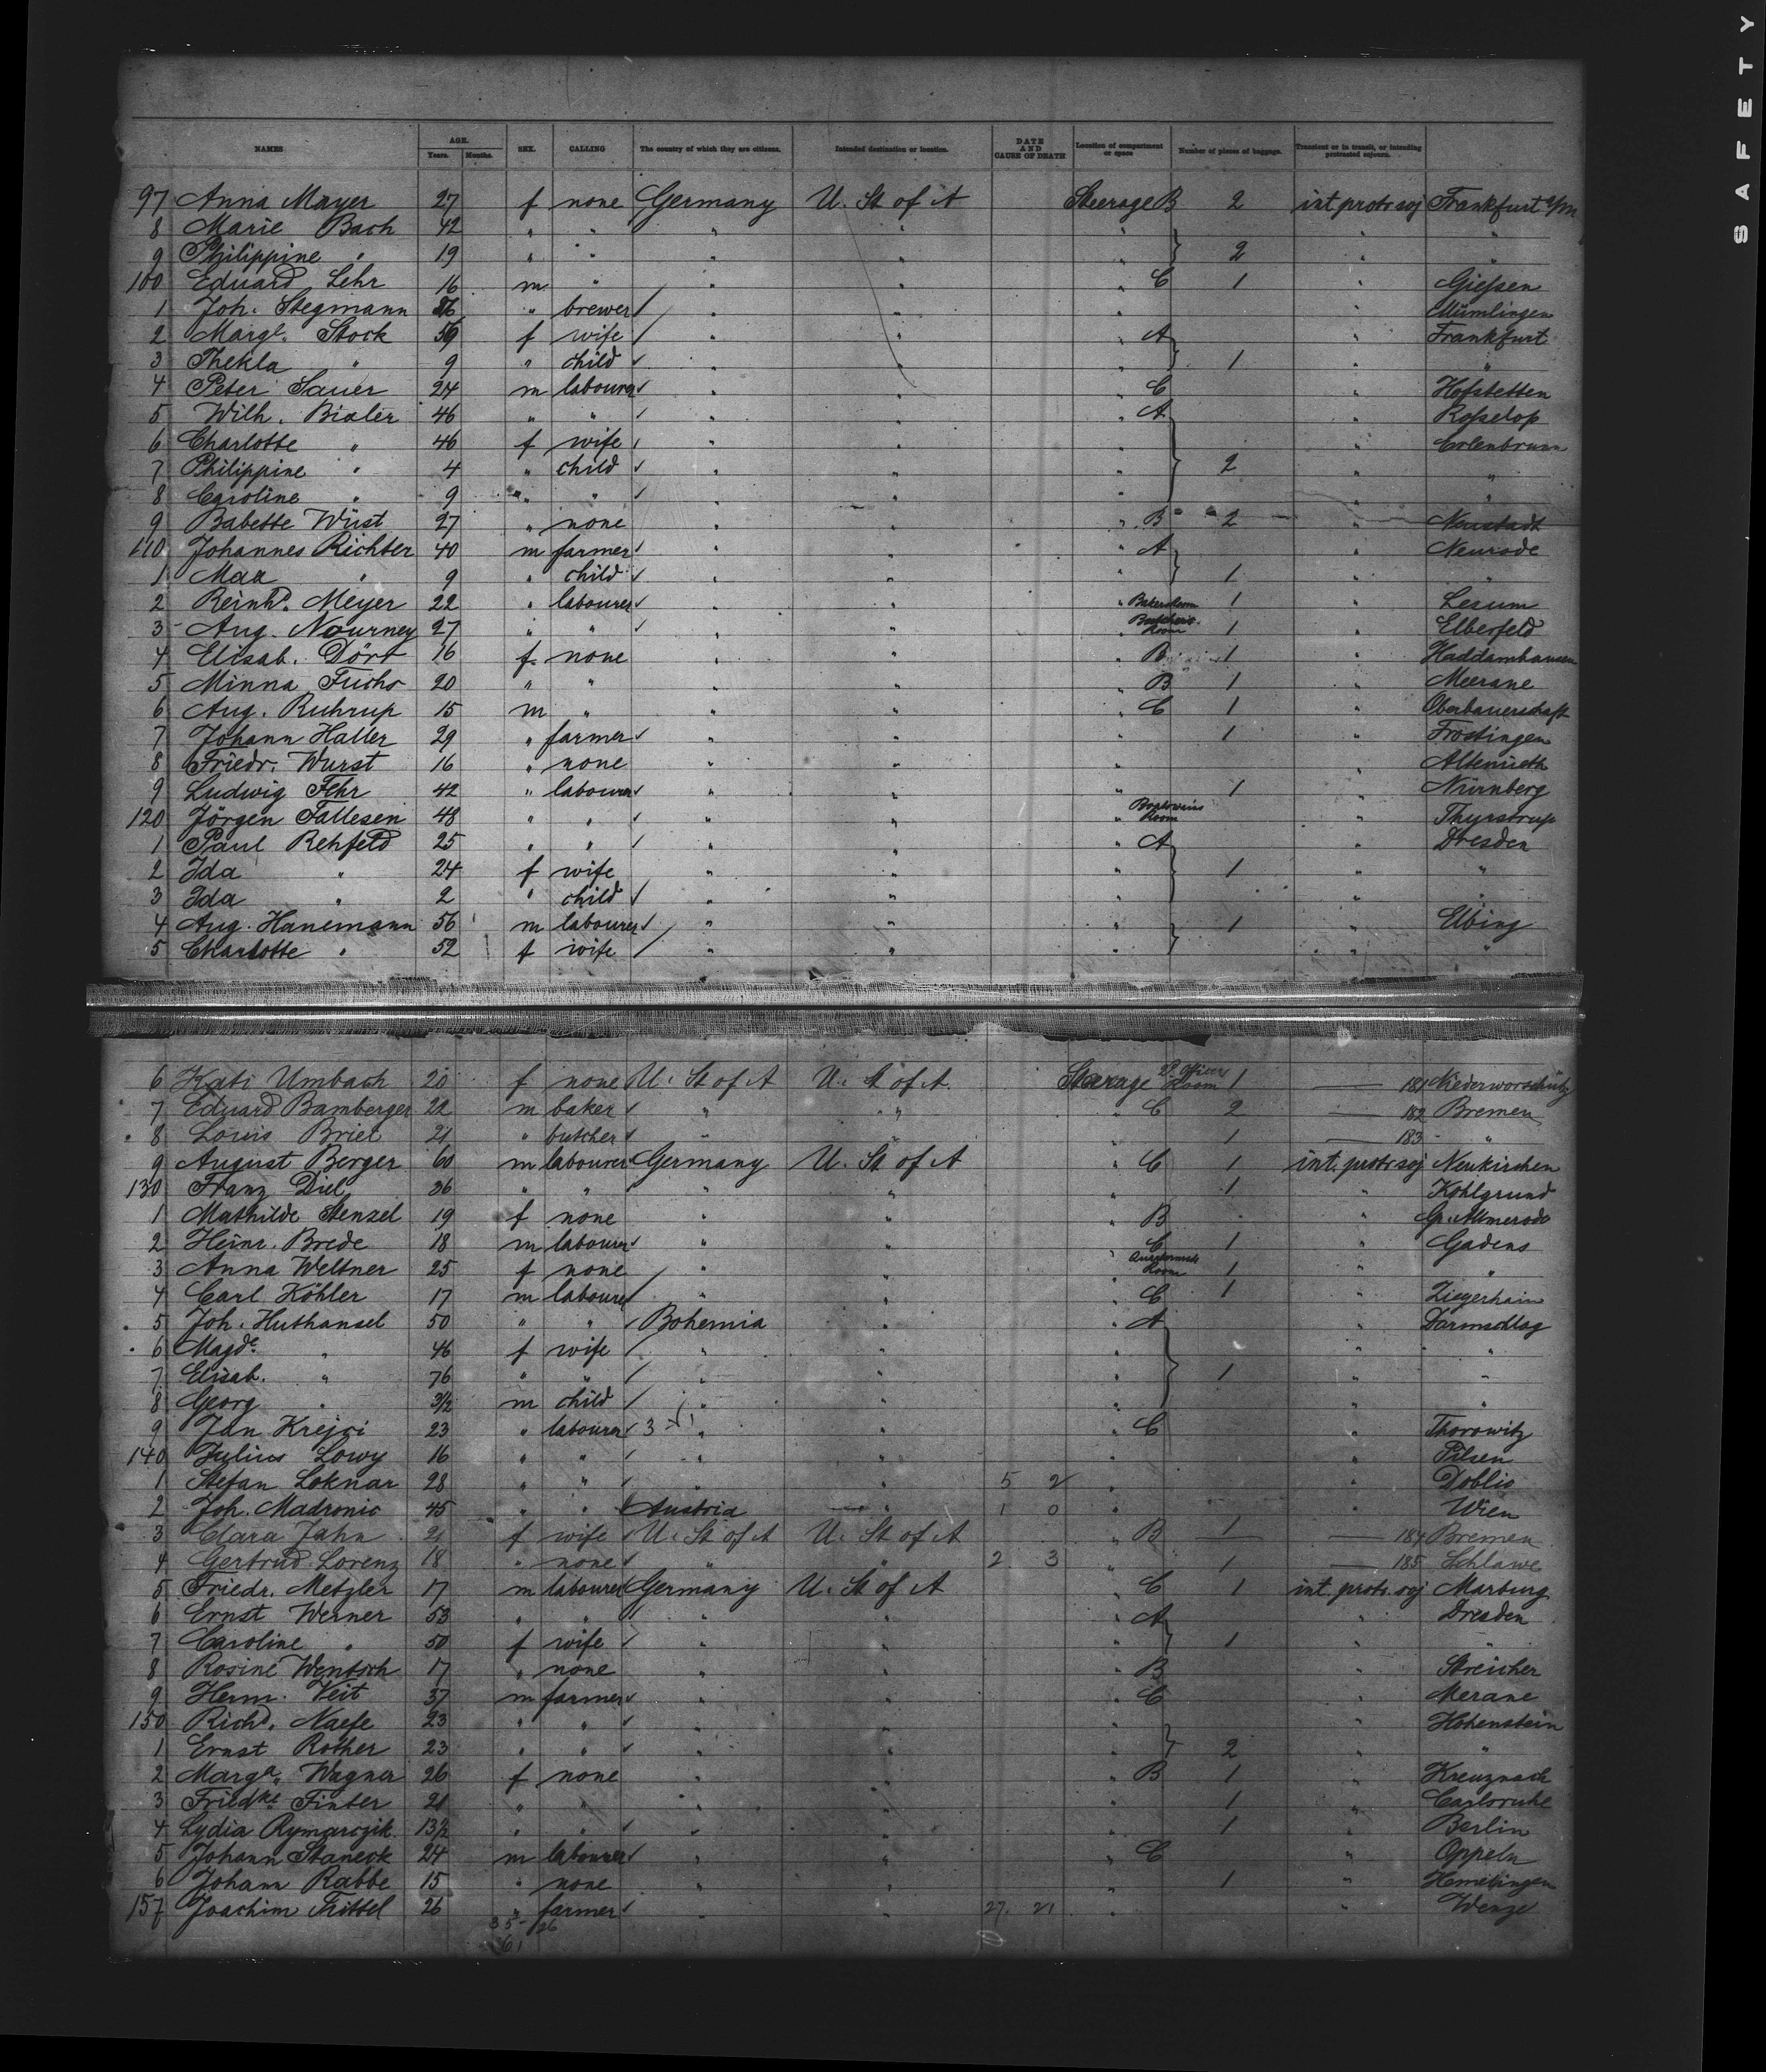 SAFETY
NAMES AGE. Years. Months. SEX. CALLING The country of which they are citizens. Intended destination or location. DATE AND CAUSE OF DEATH Location of compartment or space Number of pieces of baggage. Transient or in transit, or intending protracted sojourn.
97 Anna Mayer 27 f none Germany U. St of A Steerage B 2 int. protr soj Frankfurt a/m
8 Marie Bach 42 " " " " " " "
9 Philippine " 19 " " " " " 2 " "
100 Eduard Lehr 16 m " " " " C 1 " Giessen
1 Joh. Stegmann 26 " brewer " " " " Mümlingen
2 Margt. Stock 59 f wife " " " A " Frankfurt
3 Thekla " 9 " child " " " 1 " "
4 Peter Sauer 24 m labourer " " " C " Hofstetten
5 Wilh. Bialer 46 " " " " " A "
6 Charlotte " 46 f wife " " " " Erlenbrunn
7 Philippine " 4 " child " " " 2 " "
8 Caroline " 9 " " " " " " "
9 Babette Wüst 27 " none " " " B 2 " Neustadt
110 Johannes Richter 40 m farmer " " " A " Neurode
1 Max " 9 " child " " " 1 " "
2 Reinhd. Meyer 22 " labourer " " " Bakers Room 1 " Lesum
3 Aug. Nourney 27 " " " " Butchers Room 1 " Elberfeld
4 Elisab. Dörr 16 f none " " " B 1 " Haddamhausen
5 Minna Fuchs 20 " " " " " B 1 " Meerane
6 Aug. Ruhrup 15 m " " " " C 1 " Oberbauerschaft
7 Johann Haller 29 " farmer " " " 1 " Frostingen
8 Friedr. Wurst 16 " none " " " " Altenrieth
9 Ludwig Fehr 42 " labourer " " " 1 " Nürnberg
120 Jörgen Fallesen 48 " " " " " Boatswains Room " Thyrstrup
1 Paul Rehfeld 25 " " " " " A " Dresden
2 Ida " 24 f wife " " " 1 " "
3 Ida " 2 " child " " " " "
4 Aug. Hanemann 56 m labourer " " " 1 " Elbing
5 Charlotte " 52 f wife " " " " "
6 Kati Umbach 20 f none U. St of A U. St of A. Steerage Officers Room 1 — 181
7 Eduard Bamberger 22 m baker " " " C 2 — 182 Bremen
8 Louis Briel 21 " butcher " " " 1 — 183 "
9 August Berger 60 m labourer Germany U. St of A " C 1 int. protr soj Neukirchen
130 Franz Diel 26 " " " " " 1 " Kohlgrund
1 Mathilde Stenzel 19 f none " " " B " Gr. Almerode
2 Heinr. Brede 18 m labourer " " " C 1 " Gadens
3 Anna Weltner 25 f none " " " Room 1 " "
4 Carl Köhler 17 m labourer " " " C 1 " Ziegenhain
5 Joh. Huthansel 50 " " Bohemia " " A " Darmschlag
6 Magde. " 46 f wife " " " " "
7 Elisab. " 76 " " " " " 1 " "
8 Georg " 3/2 m child " " " " "
9 Jan Krejci 23 " labourer 3 " " " C " Thorowitz
140 Julius Lowy 16 " " " " " " Pilsen
1 Stefan Loknar 28 " " " " 5 2 " " Doblic
2 Joh. Madronic 45 " " Austria " 1 0 " " Wien
3 Clara Jahn 21 f wife U. St of A U. St of A " B 1 — 184 Bremen
4 Gertrud Lorenz 18 " none " " 2 3 " 1 — 185 Schlawe
5 Friedr. Metzler 17 m labourer Germany U. St of A " C 1 int. protr. soj Marburg
6 Ernst Werner 53 " " " " " A " Dresden
7 Caroline " 50 f wife " " " 1 " "
8 Rosine Wentsch 17 " none " " " B " Streicher
9 Herm. Veit 37 m farmer " " " C " Merane
150 Richd. Naefe 23 " " " " " " Hohenstein
1 Ernst Rother 23 " " " " " 2 " "
2 Marga. Wagner 26 f none " " " B 1 " Kreuznach
3 Friedke. Finter 21 " " " " " 1 " Carlsruhe
4 Lydia Rymarczik 13/2 " " " " " 1 " Berlin
5 Johann Staneck 24 m labourer " " " C " Oppeln
6 Johann Rabbe 15 " none " " " 1 " Hemelingen
157 Joachim Frittel 26 " farmer " " 27. 21 " " Wenze
35 26
61